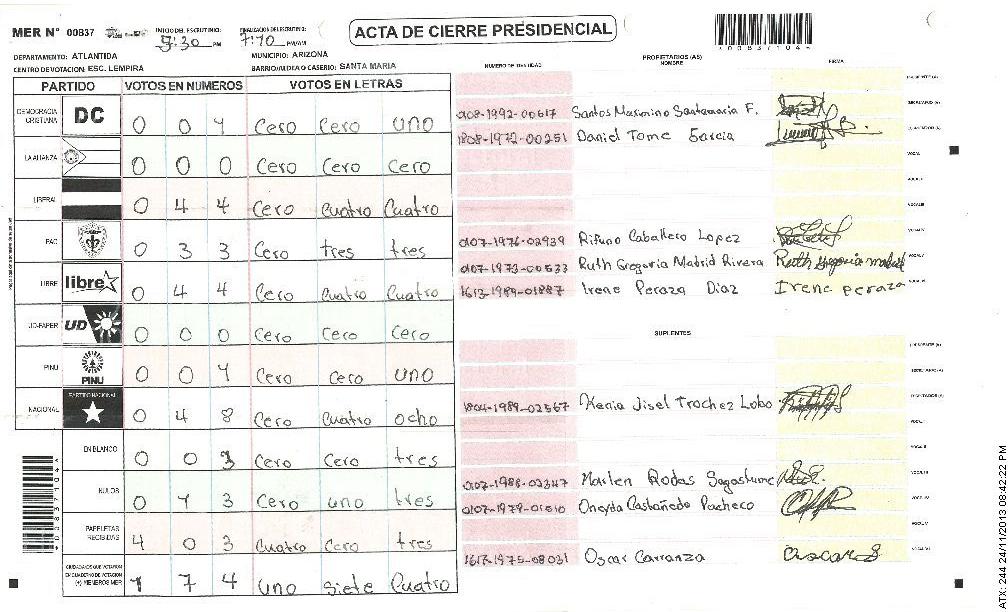 MER N° 00837 INICIO DEL ESCRUTINIO: FINALIZACION DEL ESCRUTINIO: ACTA DE CIERRE PRESIDENCIAL
:30 PM 7:10 PM/AM
DEPARTAMENTO: ATLANTIDA MUNICIPIO: ARIZONA
CENTRO DE VOTACION: ESC. LEMPIRA BARRIO/ALDEA O CASERIO: SANTA MARIA
PARTIDO VOTOS EN NUMEROS VOTOS EN LETRAS
DEMOCRACIA CRISTIANA DC 0 0 1 Cero Cero uno
LA ALIANZA 0 0 0 Cero Cero Cero
LIBERAL 0 4 4 Cero Cuatro Cuatro
PAC 0 3 3 Cero tres tres
LIBRE libre 0 4 4 Cero Cuatro Cuatro
UD-FAPER UD 0 0 0 Cero Cero Cero
PINU PINU 0 0 1 Cero Cero uno
NACIONAL PARTIDO NACIONAL 0 4 8 Cero Cuatro ocho
EN BLANCO 0 0 3 Cero Cero tres
NULOS 0 1 3 Cero uno tres
PAPELETAS RECIBIDAS 4 0 3 Cuatro Cero tres
CIUDADANOS QUE VOTARON EN CUADERNO DE VOTACION (+) MIEMBROS MER 1 7 4 uno siete Cuatro
NUMERO DE IDENTIDAD PROPIETARIOS (AS) NOMBRE FIRMA
PRESIDENTE (A)
0108-1992-00617 Santos Marinino Santamaria F. SECRETARIO (A)
1808-1972-00251 Daniel Tome Garcia ESCRUTADOR (A)
VOCAL I
VOCAL II
VOCAL III
0107-1976-02939 Caballero Lopez VOCAL IV
0107-1973-00533 Ruth Gregoria Madrid Rivera Ruth Gregoria madrid VOCAL V
1613-1989-01887 Irene Peraza Diaz Irene peraza VOCAL VI
SUPLENTES
PRESIDENTE (A)
SECRETARIO (A)
1804-1989-02567 Kenia Jisel Trochez Lobo ESCRUTADOR (A)
VOCAL I
VOCAL II
0107-1988-02347 Marlen Rodas Sagastume VOCAL III
0107-1979-01010 Oneyda Castañedo Pacheco VOCAL IV
VOCAL V
1617-1975-08031 Oscar Carranza VOCAL VI
ATX: 244 24/11/2013 08:42:22 PM